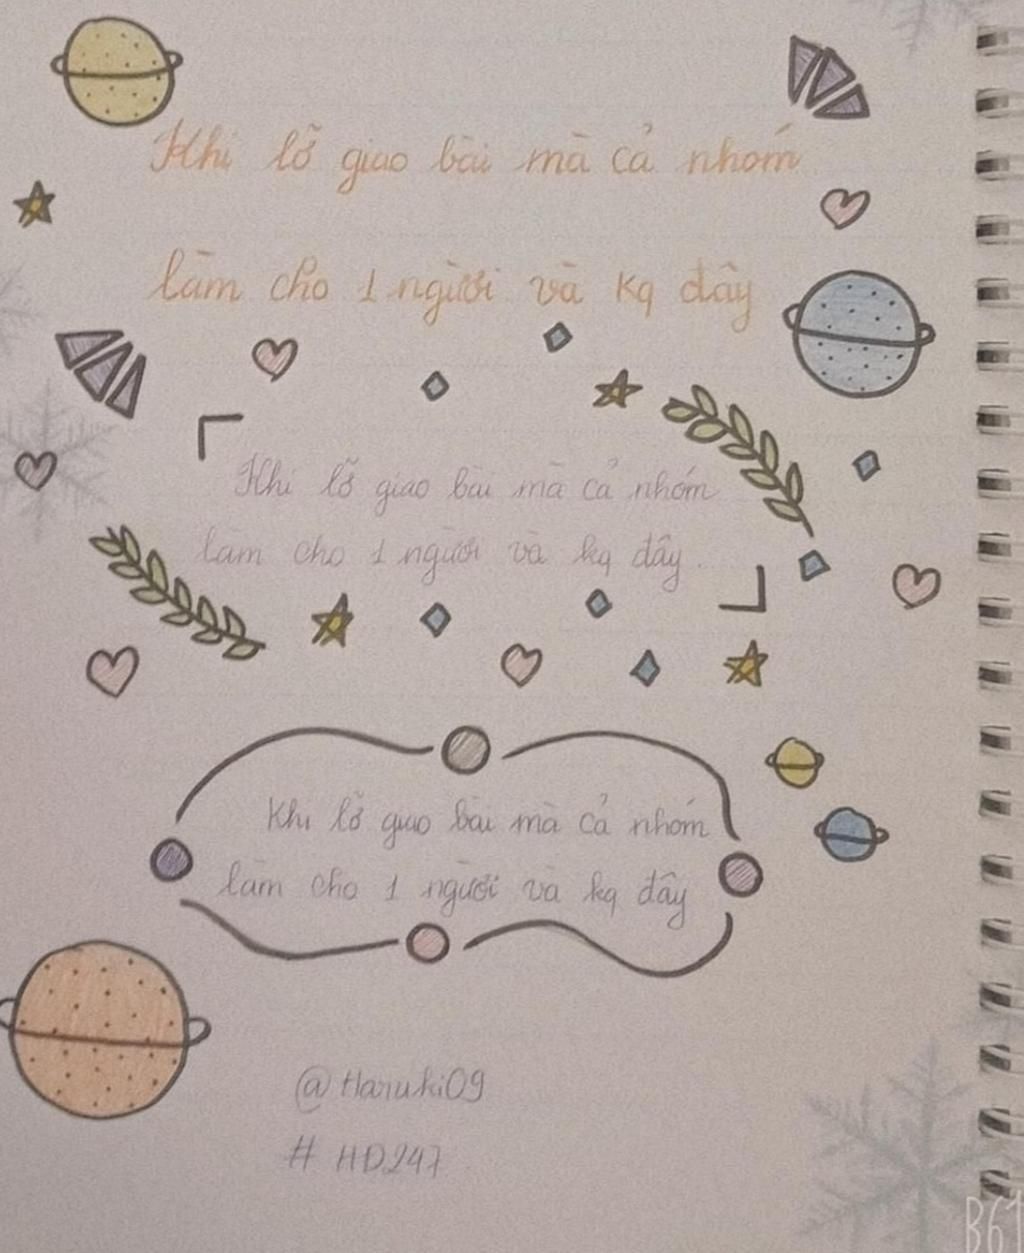 Khi lỡ giao bài mà cả nhóm
làm cho 1 người và kq đây
Khi lỡ giao bài mà cả nhóm
làm cho 1 người và kq đây...
Khi lỡ giao bài mà cả nhóm
làm cho 1 người và kq đây
@Haruki09
# HD247
B61